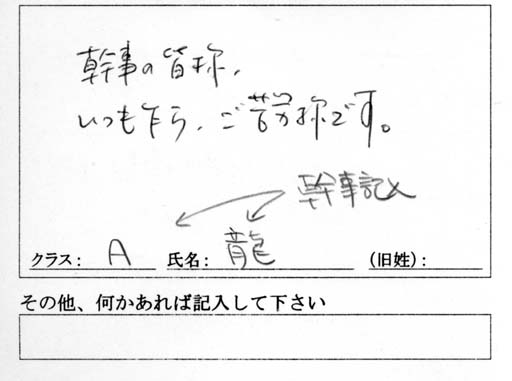 幹事の皆様、
いつも乍ら、ご苦労様です。
幹事記入
クラス: A 氏名: 龍 (旧姓):
その他、何かあれば記入して下さい